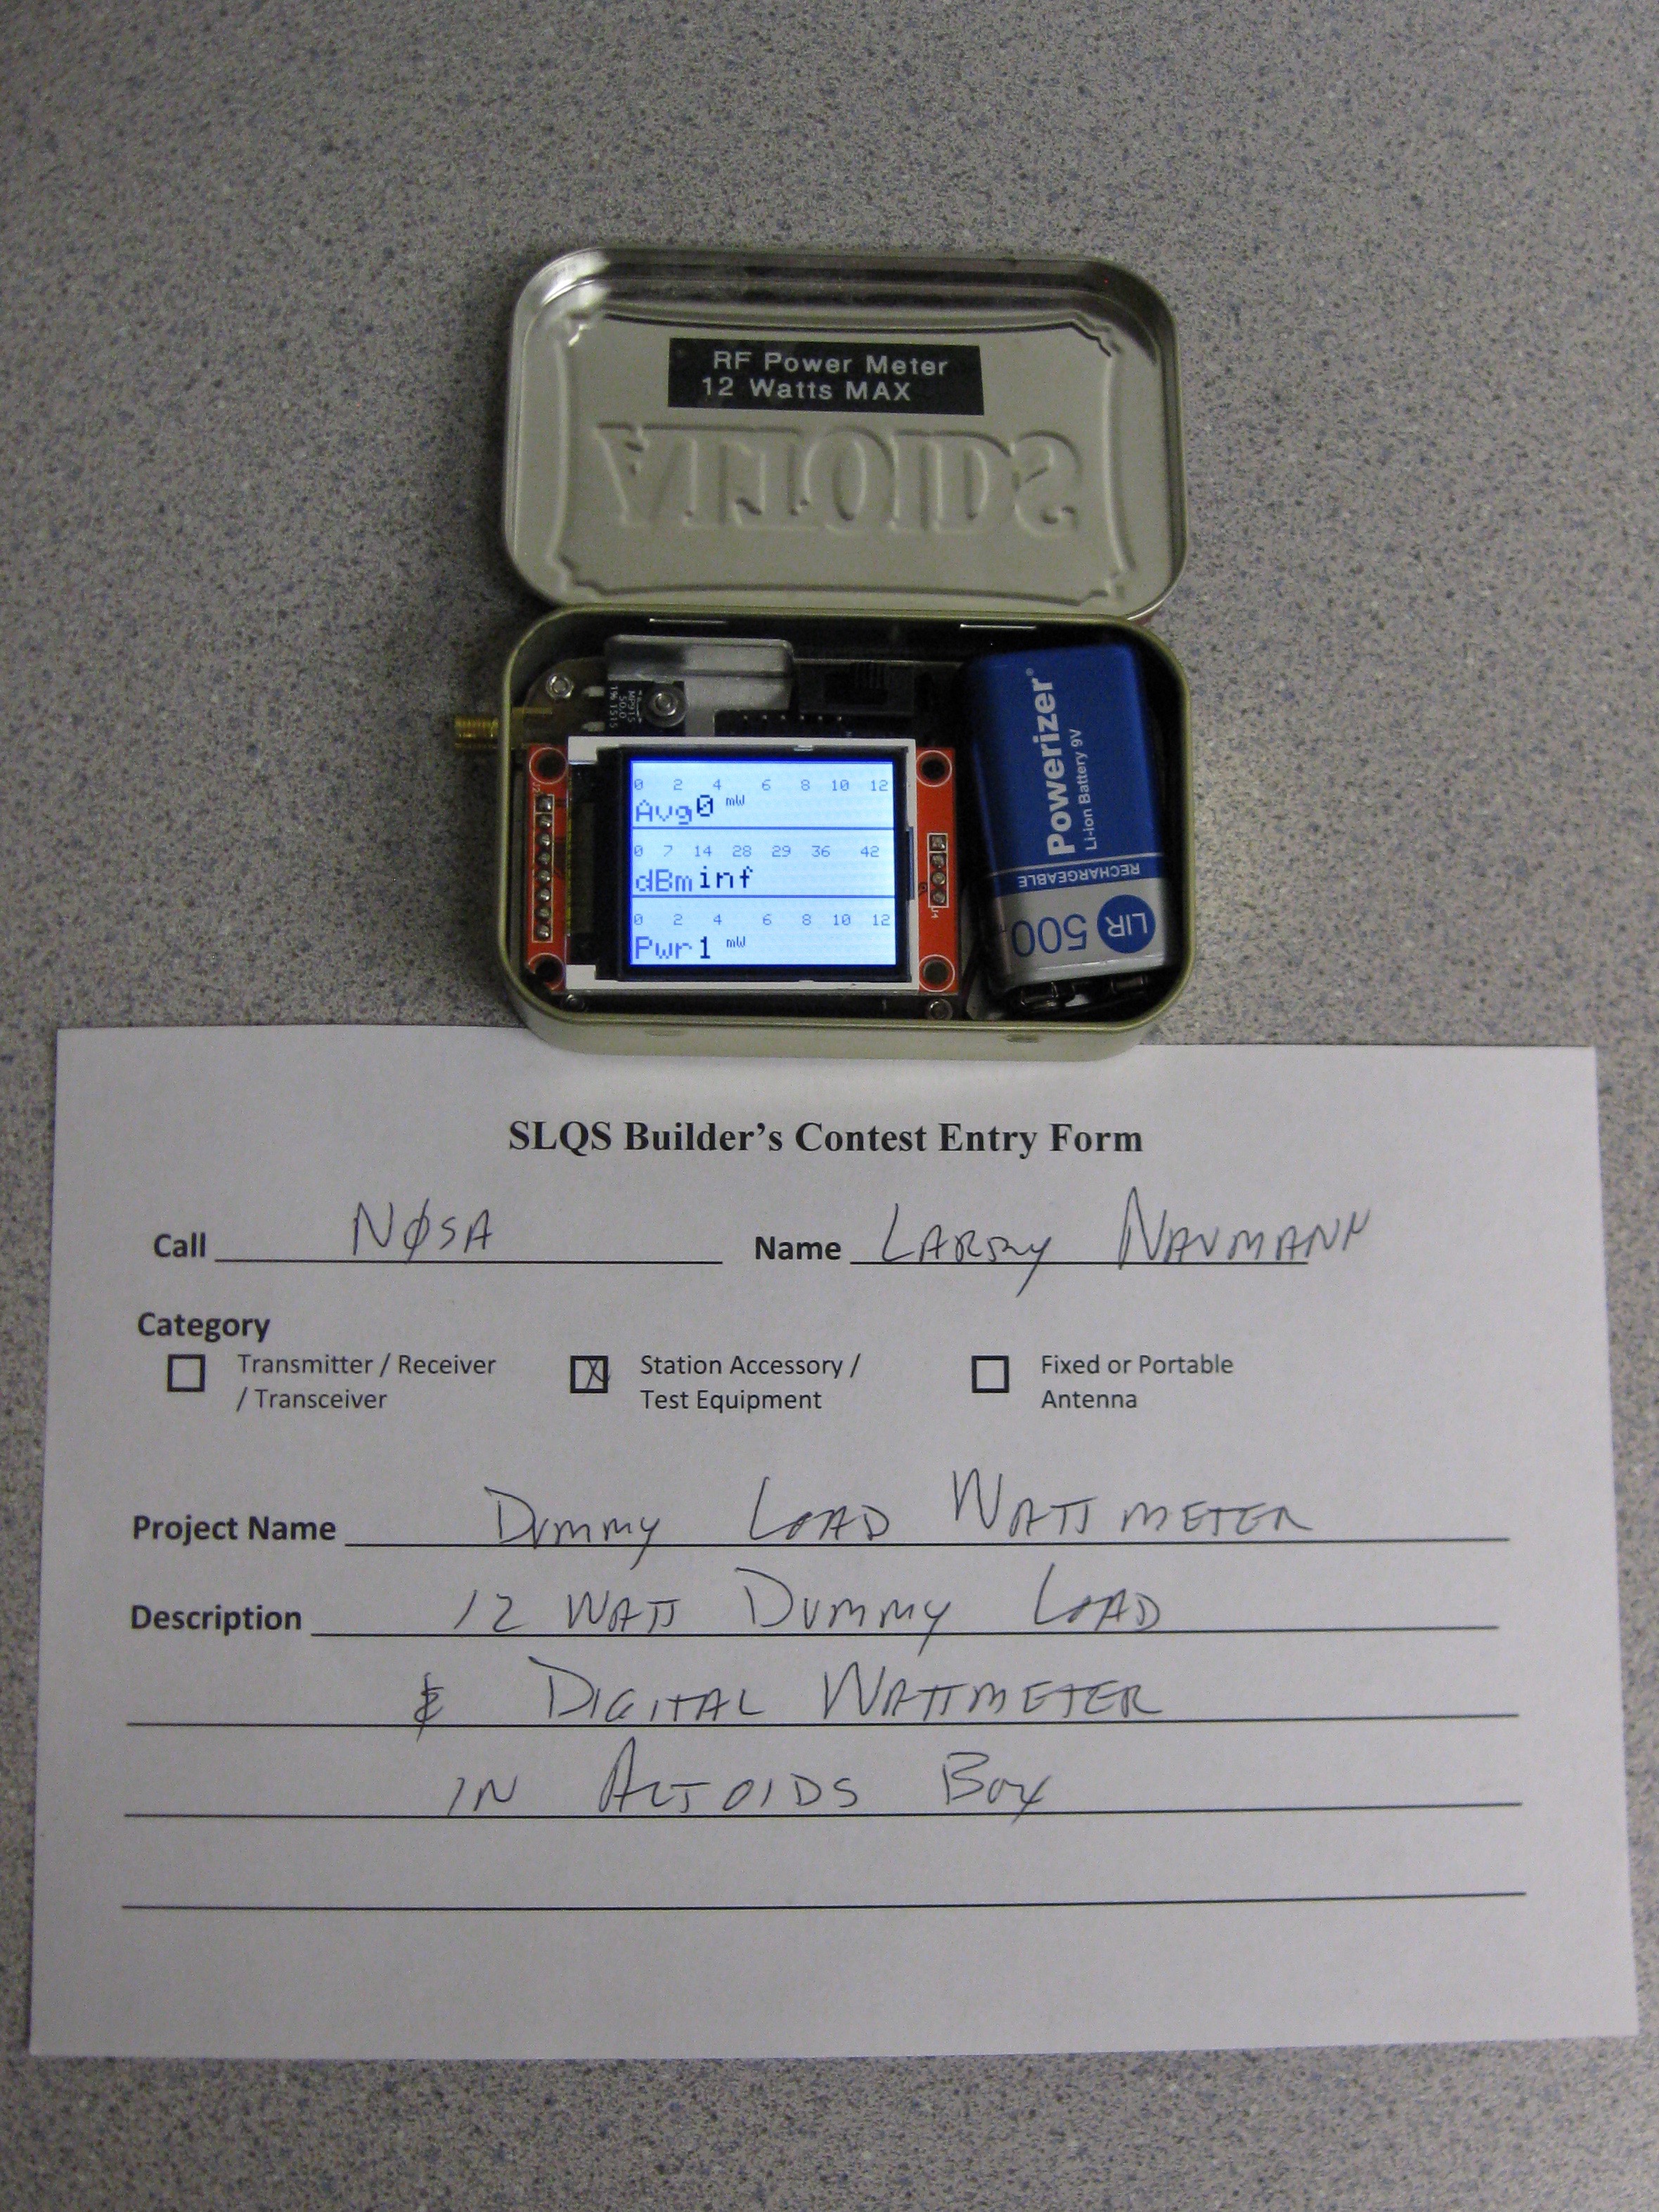 RF Power Meter
12 Watts MAX
ALTOIDS
MP915
50.0
1% 1515
J2
0 2 4 6 8 10 12
Avg 0 mW
0 7 14 28 29 36 42
dBm inf
0 2 4 6 8 10 12
Pwr 1 mW
J4
Powerizer®
Li-Ion Battery 9V
RECHARGEABLE
LIR 500
SLQS Builder's Contest Entry Form
Call NØSA Name LARRY NAUMANN
Category
Transmitter / Receiver / Transceiver
X Station Accessory / Test Equipment
Fixed or Portable Antenna
Project Name DUMMY LOAD WATTMETER
Description 12 WATT DUMMY LOAD
& DIGITAL WATTMETER
IN ALTOIDS BOX